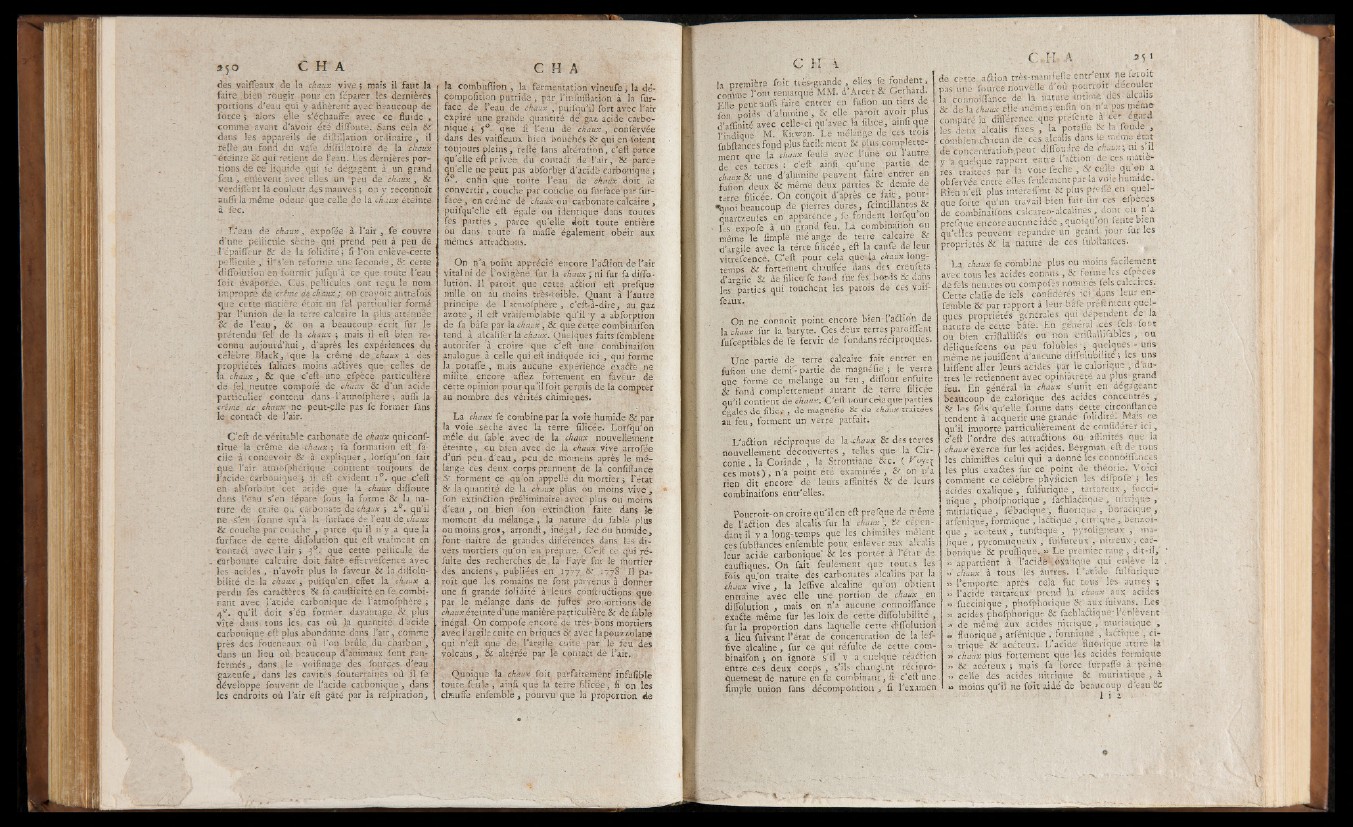 250 CHA
des vaiſſeaux de la chaux vive ; mais il faut la
faire bien rougir pour en ſéparer les dernières
portions d'eau qui y adhèrent avec beaucoup de
force ; alors elle s'échauffe avec ce fluide ,
comme avant d'avoir été diſſoute. Sans cela &
dans les appareils de diſtillation ordinaire , il
reſte au fond du vaſe diſtillatoire de la chaux
éteinte & qui retient de l'eau. Les dernières por-
tions de ce liquide qui ſe dégagent à un grand
feu , enlèvent avec elles un peu de chaux , &
verdiſſent la couleur des mauves ; on y reconnoît
auſſi la même odeur que celle de la chaux éteinte
à ſec.
L'eau de chaux , expoſée à l'air , ſe couvre
d'une pellicule sèche qui prend peu à peu de
l'épaiſſeur & de la ſolidité ; ſi l'on enlève cette
pellicule , il s'en reforme une ſeconde , & cette
diſſolution en fournit juſqu'à ce que toute l'eau
ſoit évaporée. Ces pellicules ont reçu le nom
impropre de crême de chaux ; on croyoit autrefois
que cette matière étoit un ſel particulier formé
par l'union de la terre calcaire la plus atténuée
& de l'eau , & on a beaucoup écrit ſur le
prétendu ſel de la chaux ; mais il eſt bien re-
connu aujourd'hui , d'après les expériences du
célèbre Black , que la crême de chaux a des
propriétés ſalines moins actives que celles de
la chaux , & que c'eſt une eſpèce particulière
de ſel neutre compoſé de chaux & d'un acide
particulier contenu dans l'atmoſphère ; auſſi la
crême de chaux ne peut-elle pas ſe former ſans
le contact de l'air.
C'eſt de véritable carbonate de chaux qui conſ-
titue la crême de chaux ; ſa formation eſt fa-
cile à concevoir & à expliquer , lorſqu'on ſait
que l'air atmoſphérique contient toujours de
l'acide carbonique ; il eſt évident 1°. que c'eſt
en abſorbant cet acide que la chaux diſſoute
dans l'eau s'en ſépare ſous la forme & la na-
ture de craie ou carbonate de chaux ; 2°. qu'il
ne s'en forme qu'à la ſurface de l'eau de chaux
& couche par couche , parce qu'il n'y a que la
ſurface de cette diſſolution qui eſt vraiment en
contact avec l'air ; 3°. que cette pellicule de
carbonate calcaire doit faire efferveſcence avec
les acides , n'avoir plus la ſaveur & la diſſolu-
bilité de la chaux , puiſqu'en effet la chaux a
perdu ſes caractères & ſa cauſticité en ſe combi-
nant avec l'acide carbonique de l'atmoſphère ;
4°. qu'il doit s'en former davantage & plus
vîte dans tous les cas où la quantité d'acide
carbonique eſt plus abondante dans l'air , comme
près des fourneaux où l'on brûle du charbon ,
dans un lieu où beaucoup d'animaux ſont ren-
fermés , dans le voiſinage des ſources d'eau
gazeuſe , dans les cavités ſouterraines où il ſe
développe ſouvent de l'acide carbonique , dans
les endroits où l'air eſt gâté par la reſpiration ,
CHA
la combuſtion , la fermentation vineuſe , la dé-
compoſition putride , par l'inſufflation à la ſur-
face de l'eau de chaux , puiſqu'il ſort avec l'air
expiré une grande quantité de gaz acide carbo-
nique ; 5°. que ſi l'eau de chaux , conſervée
dans des vaiſſeaux bien bouchés & qui en ſoient
toujours pleins , reſte ſans altération , c'eſt parce
qu'elle eſt privée du contact de l'air , & parce
qu'elle ne peut pas abſorber d'acide carbonique ;
6°. enfin que toute l'eau de chaux doit ſe
convertir , couche par couche ou ſurface par ſur-
face , en crême de chaux ou carbonate calcaire ,
puiſqu'elle eſt égale ou identique dans toutes
ſes parties , parce qu'elle doit toute entière
ou dans toute ſa maſſe également obéir aux
mêmes attractions.
On n'a point apprécié encore l'action de l'air
vital ni de l'oxigène ſur la chaux ; ni ſur ſa diſſo-
lution. Il paroît que cette action eſt preſque
nulle ou au moins très-foible. Quant à l'autre
principe de l'atmoſphère , c'eſt-à-dire , au gaz
azote , il eſt vraiſemblable qu'il y a abſorption
de ſa baſe par la chaux , & que cette combinaiſon
tend à alcaliſer la chaux. Quelques faits ſemblent
autoriſer à croire que c'eſt une combinaiſon
analogue à celle qui eſt indiquée ici , qui forme
la potaſſe , mais aucune expérience exacte ne
milite encore aſſez fortement en faveur de
cette opinion pour qu'il ſoit permis de la compter
au nombre des vérités chimiques.
La chaux ſe combine par la voie humide & par
la voie sèche avec la terre ſilicée. Lorſqu'on
mêle du ſable avec de la chaux nouvellement
éteinte , ou bien avec de la chaux vive arroſée
d'un peu d'eau , peu de momens après le mé-
lange ces deux corps prennent de la conſiſtance
& forment ce qu'on appelle du mortier ; l'état
& la quantité de la chaux plus ou moins vive ,
ſon extinction préliminaire avec plus ou moins
d'eau , ou bien ſon extinction faite dans le
moment du mélange , la nature du ſable plus
ou moins gros , arrondi , inégal , ſec ou humide ,
font naître de grandes différences dans les di-
vers mortiers qu'on en prépare. C'eſt ce qui ré-
ſulte des recherches de la Faye ſur le mortier
des anciens , publiées en 1777 & 1778. Il pa-
roît que les romains ne ſont parvenus à donner
une ſi grande ſolidité à leurs conſtructions que
par le mélange dans de juſtes proportions de
chaux éteinte d'une manière particulière & de ſable
inégal. On compoſe encore de très-bons mortiers
avec l'argile cuite en briques & avec la pouzzolane
qui n'eſt que de l'argile cuite par le feu des
volcans , & altérée par le contact de l'air.
Quoique la chaux ſoit parfaitement infuſible
toute ſeule , ainſi que la terre ſilicée , ſi on les
chauffe enſemble , pourvu que la proportion de
CHA
la première ſoit très-grande , elles ſe fondent ,
comme l'ont remarqué MM. d'Arcet & Gerhard.
Elle peut auſſi faire entrer en fuſion un tiers de
ſon poids d'alumine , & elle paroît avoir plus
d'affinité avec celle-ci qu'avec la ſilice , ainſi que
l'indique M. Kirwan. Le mélange de ces trois
ſubſtances fond plus facilement & plus complette-
ment que la chaux ſeule avec l'une ou l'autre
de ces terres ; c'eſt ainſi qu'une partie de
chaux & une d'alumine peuvent faire entrer en
fuſion deux & même deux parties & demie de
terre ſilicée. On conçoit d'après ce fait , pour-
quoi beaucoup de pierres dures , ſcintillantes &
quartzeuſes en apparence , ſe fondent lorſqu'on
les expoſe à un grand feu. La combinaiſon ou
même le ſimple mélange de terre calcaire &
d'argile avec la terre ſilicée , eſt la cauſe de leur
vitreſcence. C'eſt pour cela que la chaux long-
temps & fortement chauffée dans des creuſets
d'argile & de ſilice ſe fond ſur ſes bords & dans
les parties qui touchent les parois de ces vaiſ-
ſeaux.
On ne connoît point encore bien l'action de
la chaux ſur la baryte. Ces deux terres paroiſſent
ſuſceptibles de ſe ſervir de fondans réciproques.
Une partie de terre calcaire fait entrer en
fuſion une demi-partie de magnéſie ; le verre
que forme ce mélange au feu , diſſout enſuite
& fond complettement autant de terre ſilicée
qu'il contient de chaux. C'eſt pour cela que parties
égales de ſilice , de magnéſie & de chaux traitées
au feu , forment un verre parfait.
L'action réciproque de la chaux & des terres
nouvellement découvertes , telles que la Cir-
conie , la Corinde , la Strontiane &c. ( Voyez
ces mots ) , n'a point été examinée , & on n'a
rien dit encore de leurs affinités & de leurs
combinaiſons entr'elles.
Pourroit-on croire qu'il en eſt preſque de même
de l'action des alcalis ſur la chaux , & cepen-
dant il y a long-temps que les chimiſtes mêlent
ces ſubſtances enſemble pour enlever aux alcalis
leur acide carbonique & les porter à l'état de
cauſtiques. On ſait ſeulement que toutes les
fois qu'on traite des carbonates alcalins par la
chaux vive , la leſſive alcaline qu'on obtient
entraîne avec elle une portion de chaux en
diſſolution , mais on n'a aucune connoiſſance
exacte même ſur les loix de cette diſſolubilité ,
ſur la proportion dans laquelle cette diſſolution
a lieu ſuivant l'état de concentration de la leſ-
ſive alcaline , ſur ce qui réſulte de cette com-
binaiſon ; on ignore s'il y a quelque réaction
entre ces deux corps , s'ils changent récipro-
quement de nature en ſe combinant , ſi c'eſt une
ſimple union ſans décompoſition , ſi l'examen
CHA 251
de cette action très-manifeſte entr'eux ne ſeroit
pas une ſource nouvelle d'où pourroit découler
la connoiſſance de la nature intime des alcalis
& de la chaux elle-même ; enfin on n'a pas même
comparé la différence que préſente à cet égard
les deux alcalis fixes , la potaſſe & la ſoude ,
combien chacun de ces alcalis dans le même état
de concentration peut diſſoudre de chaux ; ni s'il
y a quelque rapport entre l'action de ces matiè-
res traitées par la voie sèche , & celle qu'on a
obſervée entre elles ſeulement par la voie humide.
Rien n'eſt plus intéreſſant & plus preſſé en quel-
que ſorte qu'un travail bien fait ſur ces eſpèces
de combinaiſons calcareo-alcalines , dont on n'a
preſque encore aucune idée , quoiqu'on ſente bien
qu'elles peuvent répandre un grand jour ſur les
propriétés & la nature de ces ſubſtances.
La chaux ſe combine plus ou moins facilement
avec tous les acides connus , & forme les eſpèces
de ſels neutres ou compoſés nommés ſels calcaires.
Cette claſſe de ſels conſidérés ici dans leur en-
ſemble & par rapport à leur baſe préſentent quel-
ques propriétés générales qui dépendent de la
nature de cette baſe. En général ces ſels ſont
ou bien criſtalliſés ou non criſtalliſables , ou
déliqueſcens ou peu ſolubles ; quelques-uns
même ne jouiſſent d'aucune diſſolubilité ; les uns
laiſſent aller leurs acides par le calorique , d'au-
tres le retiennent avec opiniâtreté au plus grand
feu. En général la chaux s'unit en dégageant
beaucoup de calorique des acides concentrés ,
& les ſels qu'elle forme dans cette circonſtance
tendent à acquérir une grande ſolidité. Mais ce
qu'il importe particulièrement de conſidérer ici ,
c'eſt l'ordre des attractions ou affinités que la
chaux exerce ſur les acides. Bergman eſt de tous
les chimiſtes celui qui a donné les connoiſſances
les plus exactes ſur ce point de théorie. Voici
comment ce célèbre phyſicien les diſpoſe ; les
acides oxalique , ſulfurique , tartareux , ſucci-
nique , phoſphorique , ſachlactique , nitrique ,
muriatique , ſébacique , fluorique , boracique ,
arſenique , formique , lactique , citrique , benzoï-
que , acéteux , tunſtique , pyroligneux , ma-
lique , pyromuqueux , ſulfureux , nitreux , car-
bonique & pruſſique. » Le premier rang , dit-il ,
» appartient à l'acide oxalique qui enlève la
» chaux à tous les autres. L'acide ſulfurique
» l'emporte après cela ſur tous les autres ;
» l'acide tartareux prend la chaux aux acides
» ſuccinique , phoſphorique & aux ſuivans. Les
» acides phoſphorique & ſachlactique l'enlèvent
» de même aux acides nitrique , muriatique ,
» fluorique , arſenique , formique , lactique , ci-
» trique & acéteux. L'acide fluorique attire la
» chaux plus fortement que les acides formique
» & acéteux ; mais ſa force ſurpaſſe à peine
» celle des acides nitrique & muriatique , à
» moins qu'il ne ſoit aidé de beaucoup d'eau &
I i 2